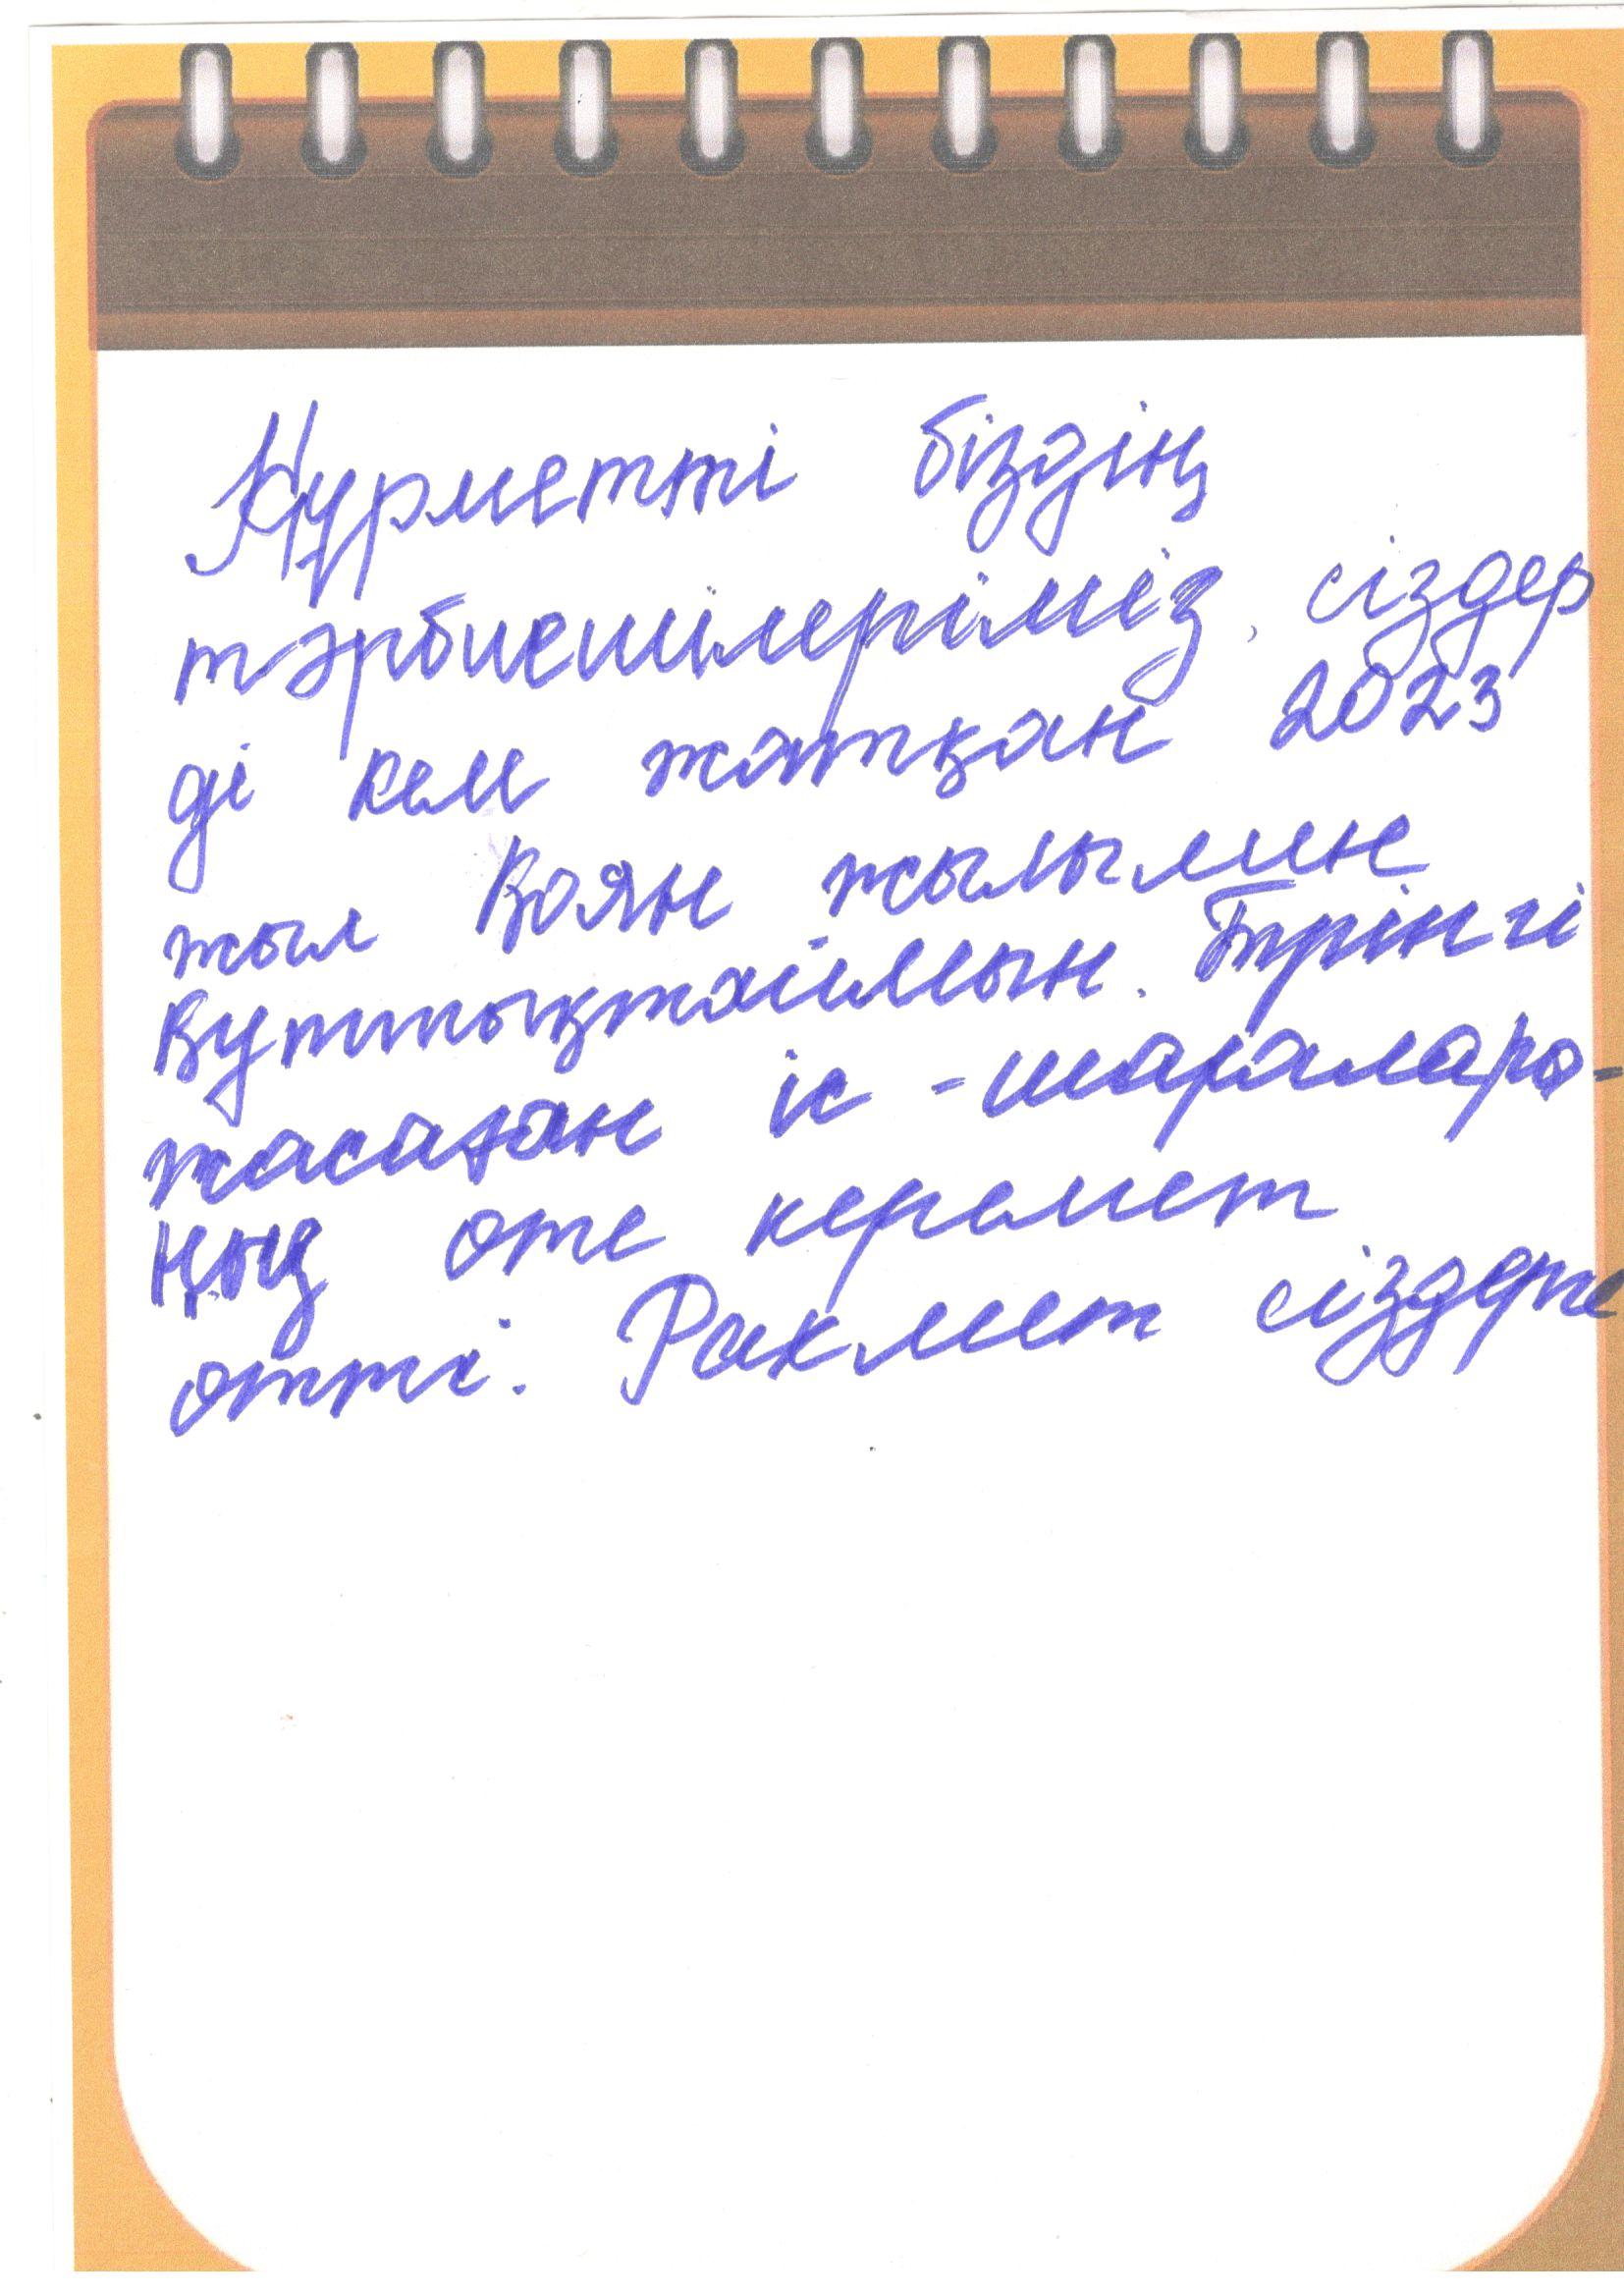 Құрметті біздің
тәрбиешілеріміз, сіздер
ді келе жатқан 2023
жыл Қоян жылымен
Құттықтаймын. Бүгінгі
жасаған іс-шаралары-
ңыз өте керемет
өтті. Рахмет сіздерге